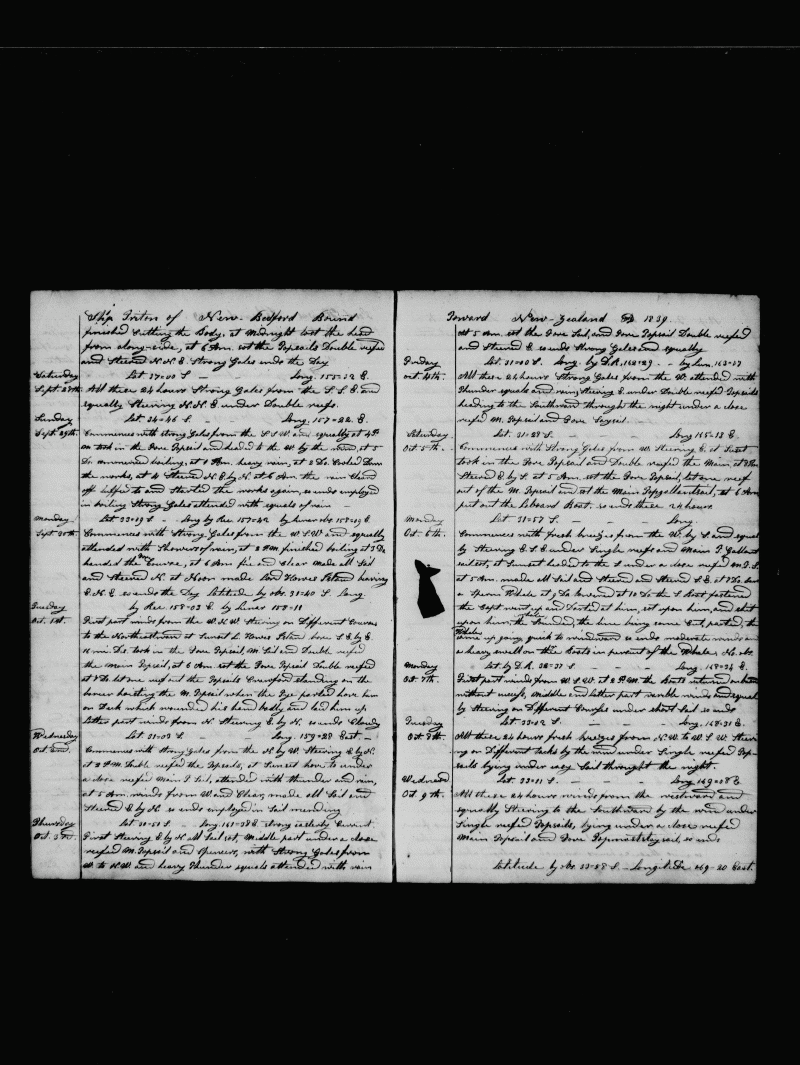 Ship Triton of New Bedford Bound
finished Cutting the Body, at Midnight lost the head
from along-side, at 6 Am. set the Topsails Double reefed
and Steered N.N.E. Strong Gales ends the Day
Saturday Lat 37=00 S. — Long. 155=32 E.
Sept. 28th All these 24 hours Strong Gales from the S.S.E. and
squally Steering N.N.E. under Double reefs.
Sunday Lat 34=46 S. — Long. 157=22 E.
Sept. 29th. Commences with strong Gales from the S S W. and squally at 4 P.
M. took in the Fore Topsail and headed to the W. by the wind, at 5
Do. commenced boiling, at 8 Am. heavy rain, at 2 Do. Cooled Down
the works, at 4 Steered N.E. by N. at 6 Am. the rain
off and started the works again, so ends employed
in boiling Strong Gales attended with squals of rain —
Monday Lat 33=19 S. — Long by Rec. 157=42 by Lunar obs. 157=19 E.
Sept. 30th. Commences with Strong Gales from the W.S.W. and squally
attended with Showers of rain, at 8 P.M finished boiling at 3 Do.
handed the Course, at 6 Am. fine and Clear Made all Sail
and Steered N. at Noon made Lord Howes Island bearing
E.N.E. so ends the Day Latitude by obs. 31=40 S. Long.
by Rec. 158=03 E. by Lunar 158=11
Tuesday
Oct. 1st. First part winds from the W.N.W. Steering on Different Courses
to the Northeastward at Sunset L. Howes Island bore S.E. by E.
16 mi. Do. took in the Fore Topsail, M. Sail and Double reefed
the Main Topsail, at 6 Am. set the Fore Topsail Double reefed
at 7 Do. let one reef out the Topsails Crawford standing on the
hoisting the M. Topsail when the Tye parted hove him
on Deck which wounded his head badly and laid him up
Latter part winds from N. Steering E. by N. so ends Cloudy
Wednesday Lat. 31=03 S. — Long. 159=28 East. —
Oct. 2nd. Commences with strong Gales from the N. by W. Steering E. by N.
at 2 P.M. Double reefed the Topsails, at Sunset hove to under
a close reefed Main T. Sail, attended with thunder and rain,
at 5 Am. winds from W. and Clear, made all Sail and
Steered E. by N. so ends employed in Sail mending
Thursday Lat. 30=51 S. — Long. 161=38 E. strong easterly Current.
Oct. 3rd. First Steering E. by N. all Sail set, Middle part under a close
reefed M. Topsail and Spencers, with Strong Gales from
W. to N.W. and heavy Thunder squals attended with rain
Toward New-Zealand 1839.
At 5 Am. set the Fore Sail, and Fore Topsail Double reefed
and Steered E. so ends Strong Gales and squally
Friday Lat. 31=00 S. Long. by D.R. 162=29. — by Lun. 163=27
Oct. 4th. All these 24 hours Strong Gales from the W. attended with
Thunder squals and rain, Steering E. under Double reefed Topsails
heading to the Southward through the night under a close
reefed M. Topsail and Fore Staysail.
Saturday Lat. 31=28 S. Long. 165=18 E.
Oct. 5th. Commences with Strong Gales from W. Steering E. at Sunset
took in the Fore Topsail and Double reefed the Main, at
Steered E. by S. at 5 Am. set the Fore Topsail, let one reef
out of the M. Topsail and set the Main Topgallantsail, at 6 Am.
put out the Larboard Boat. so ends these 24 hours.
Monday Lat. 31=57 S. — Long.
Oct. 6th. Commences with fresh breezes from the W. by S. and squal
ly Steering E.S.E. under Single reefs and Main T. Gallant
sail set, at Sunset headed to the S. under a close reefed M.T.S.
at 5 Am. made all Sail and Steered and Steered S.E. at 7 Do. saw
a Sperm Whale at 9 Do. lowered at 10 Do. the L. Boat fastened
the Capt. went up and Darted at him, set upon him, and
upon him, the Whale Sounded, the line being came Out, parted, the
Whale came up going quick to windward so ends moderate winds and
a heavy swell on three Boats in pursuit of the Whale. No obs.
Monday Lat. by D.R. 32=37 S. — Long. 167=24 E.
Oct. 7th. First part winds from W.S.W. at 2 P.M. the Boats returned on board
without success, Middle and latter part variable winds and squal
ly Steering on Different Courses under short Sail so ends
Tuesday Lat. 33=02 S. — Long. 168=31 E.
Oct. 8th. All these 24 hours fresh breezes from N.W. to W.S.W. Steer
ing on Different Tacks by the wind under Single reefed Top
sails lying under easy Sail throught the night.
Wednesd Lat. 33=11 S. — Long. 169=08 E.
Oct. 9th. All these 24 hours winds from the westward and
squally Steering to the Southward by the wind under
Single reefed Topsails, lying under a close reefed
Main Topsail and Fore Topmaststay sail, so ends
Latitude by obs. 33=58 S. — Longitude 169=20 East.